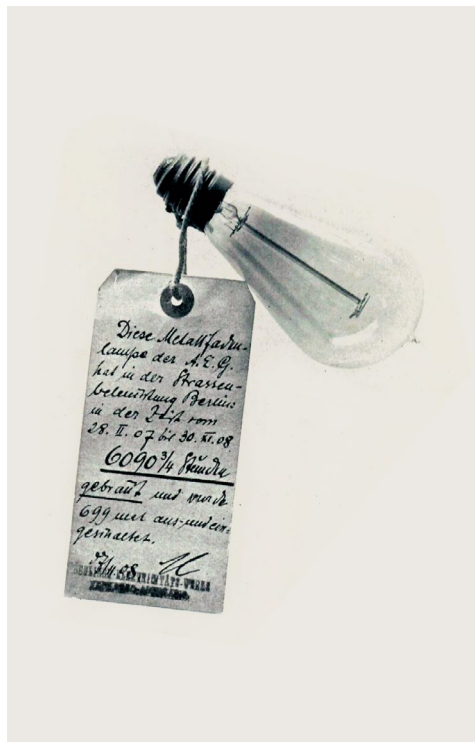 Diese Metallfaden-
lampe der A.E.G.
hat in der Strassen-
beleuchtung Berlins
in der Zeit vom
28. II. 07 bis 30. XI. 08.
6090 3/4 Stunden
gebrannt und wurde
699 mal aus- und ein-
geschaltet.
08
ELECTRICITÄTS-WERKE